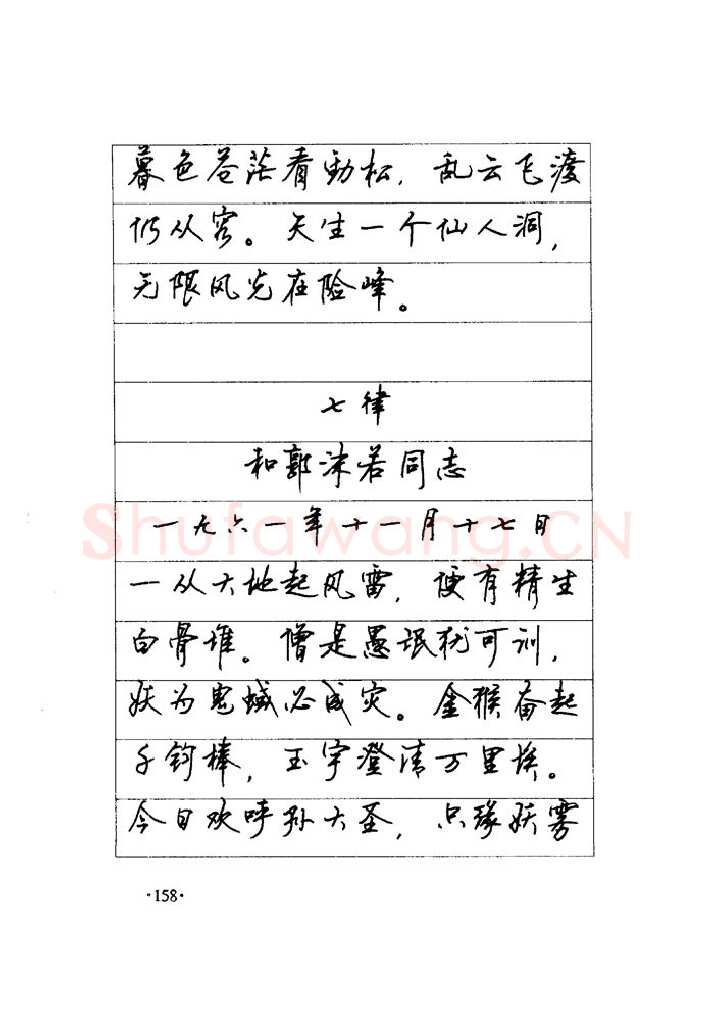 暮色苍茫看劲松，乱云飞渡
仍从容。天生一个仙人洞，
无限风光在险峰。
七律
和郭沫若同志
一九六一年十一月十七日
一从大地起风雷，便有精生
白骨堆。僧是愚氓犹可训，
妖为鬼蜮必成灾。金猴奋起
千钧棒，玉宇澄清万里埃。
今日欢呼孙大圣，只缘妖雾
Shufawang.CN
·158·